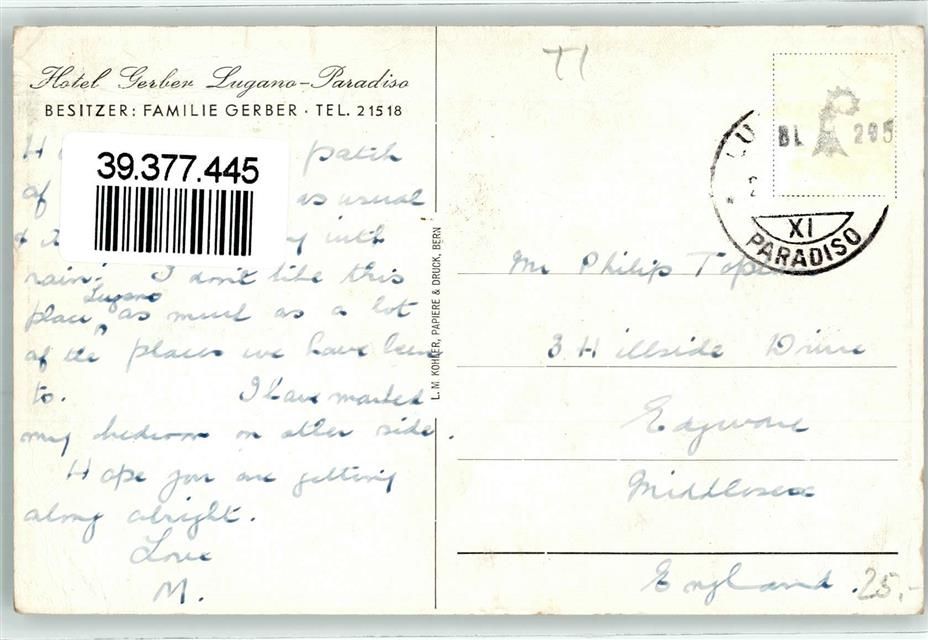 Hotel Gerber Lugano-Paradiso
BESITZER: FAMILIE GERBER · TEL. 21518
patch
of as usual
with
rain. I don't like this
place, Lugano as much as a lot
of the places we have been
to. I have marked
my bedroom on other side.
Hope you are getting
along alright.
Love
M.
39.377.445
L. M. KOHLER, PAPIERE & DRUCK, BERN
TI
BL 295
LU
XI
PARADISO
Mr Philip
3 Hillside Drive
Edgware
Middlesex
England.
25.-